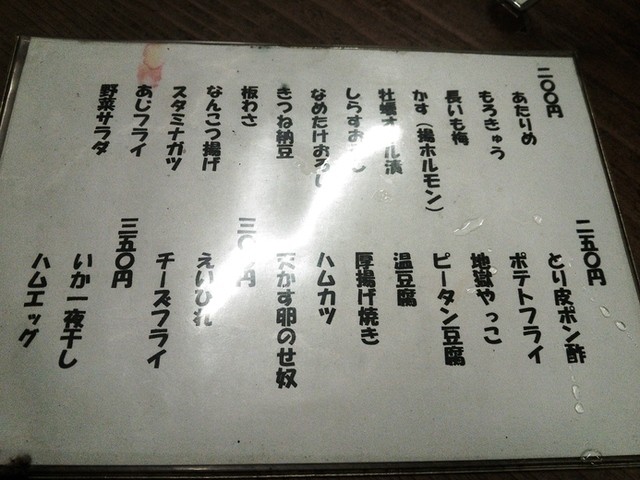 二〇〇円
あたりめ
もろきゅう
長いも梅
かす(揚ホルモン)
牡蠣オイル漬
しらすおろし
なめたけおろし
きつね納豆
板わさ
なんこつ揚げ
スタミナガツ
あじフライ
野菜サラダ
二五〇円
とり皮ポン酢
ポテトフライ
地獄やっこ
ピータン豆腐
温豆腐
厚揚げ焼き
ハムカツ
天かす卵のせ奴
三〇〇円
えいひれ
チーズフライ
三五〇円
いか一夜干し
ハムエッグ